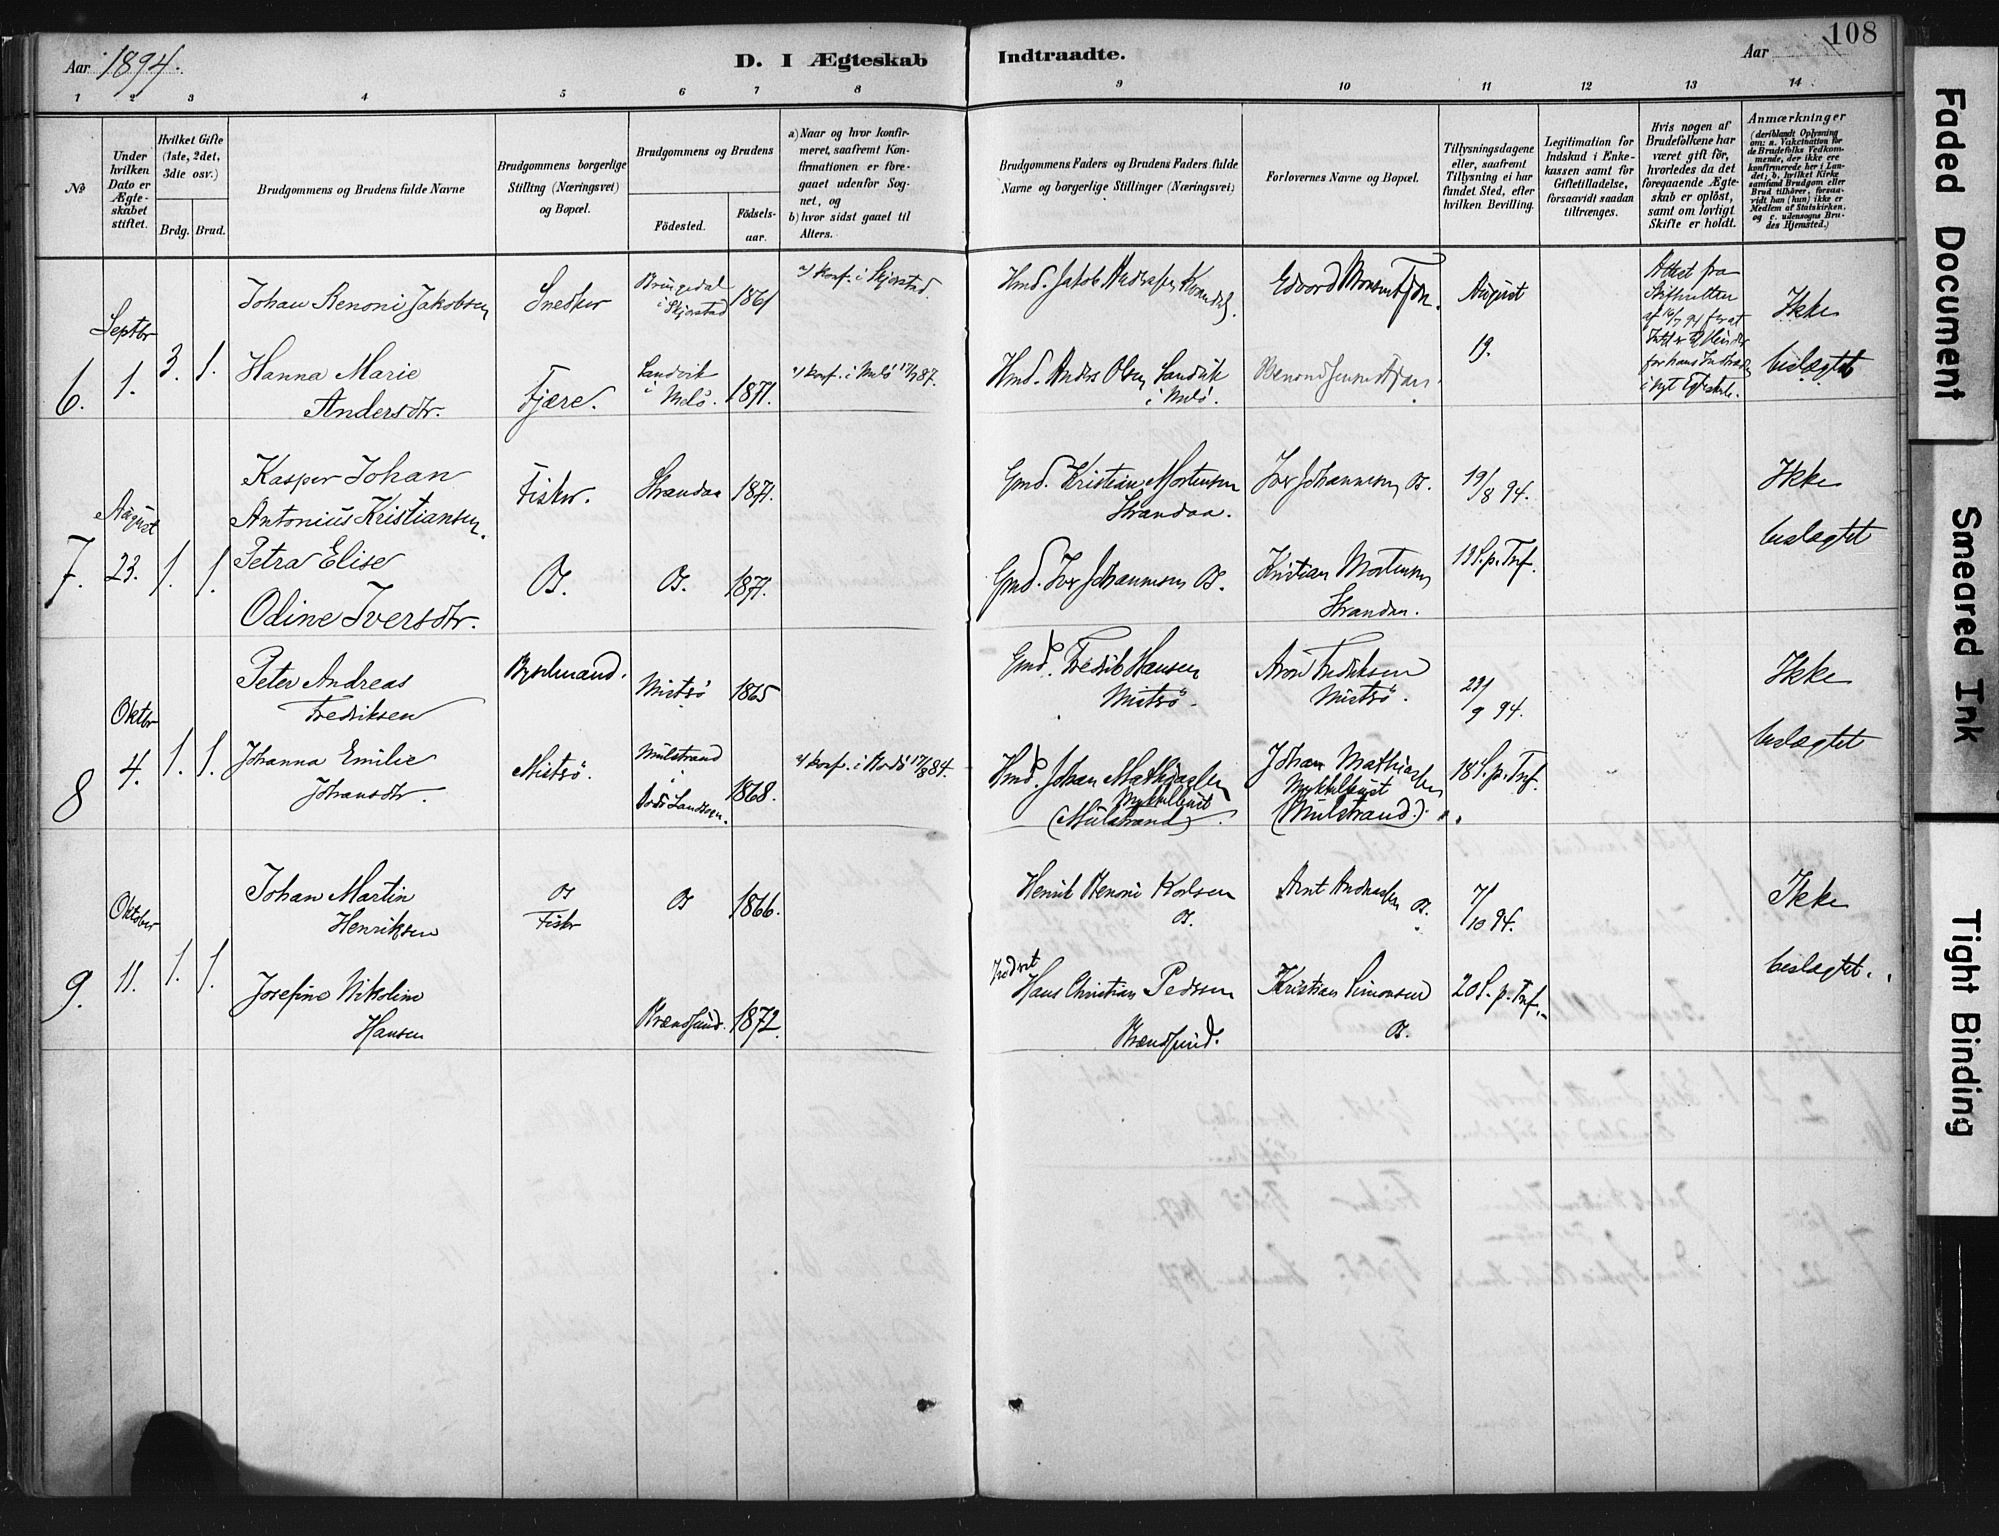 108
Aar 1894.
D. I Ægteskab
Indtraadte.
Aar
1 2 3 4 5 6 7 8 9 10 11 12 13 14
No
Under hvilken Dato er Ægteskabet stiftet.
Hvilket Gifte (1ste, 2det, 3die osv.)
Brdg. Brud.
Brudgommens og Brudens fulde Navne
Brudgommens borgerlige Stilling (Næringsvei) og Bopæl.
Brudgommens og Brudens
Födested.
Födselsaar.
a) Naar og hvor konfirmeret, saafremt Konfirmationen er foregaaet udenfor Sognet, og
b) hvor sidst gaaet til Alters.
Brudgommens Faders og Brudens Faders fulde Navne og borgerlige Stillinger (Næringsvei)
Forlovernes Navne og Bopæl.
Tillysningsdagene eller, saafremt Tillysning ei har fundet Sted, efter hvilken Bevilling.
Legitimation for Indskud i Enkekassen samt for Giftetilladelse, forsaavidt saadan tiltrænges.
Hvis nogen af Brudefolkene har været gift för, hvorledes da det foregaaende Ægteskab er oplöst, samt om lovligt Skifte er holdt.
Anmærkninger
(deriblandt Oplysning om: a. Vakcination for de Brudefolks Vedkommende, der ikke ere konfirmerede her i Landet; b. hvilket Kirkesamfund Brudgom eller Brud tilhörer, forsaavidt han (hun) ikke er Medlem af Statskirken, og c. udensogns Brudes Hjemsted.)
6. Septbr 1. 3. 1.
Johan Benoni Jakobsen
Snedker
i Skjerstad 1861
a) konf. i Skjerstad.
Hmd. Jakob
Edvard
August 19.
Attest fra Skifteretten af
Ikke beslægtet
Hanna Marie Andersdtr.
Fjære.
Sandvik i Melö. 1871.
a) konf. i Melö 17/7 87.
Hmd. Anders Olsen Sandvik i Melö.
7. August 23. 1. 1.
Kasper Johan Antonius Kristiansen.
Fisker.
Strandaa 1871.
Gmd. Kristian Mortensen Strandaa.
Iver Johannesen Os.
19/8 94.
Ikke beslægtet
Petra Elise Odine Iversdtr.
Os. Os. 1871.
Gmd. Iver Johannesen Os.
Kristian Mortensen Strandaa.
13 S. p. Trf.
8 Oktbr 4. 1. 1.
Peter Andreas Fredriksen
Mistsö 1865
Gmd. Fredrik Hansen Mistsö.
Aron Fredriksen Mistsö.
23/9 94.
Ikke beslægtet
Johanna Emilie Johansdtr.
Mistsö.
Mulstrand i Bodö Landsogn. 1868.
a) konf. i Bodö 17/8 84.
Hmd. Johan Mathiassen Myklebust (Mulstrand).
Johan Mathiassen Myklebust (Mulstrand).
18 S. p. Trf.
9. Oktober 11. 1. 1.
Johan Martin Henriksen
Os Fisker
Os 1866.
Henrik Benoni Karlsen Os.
Arnt Andreassen Os.
7/10 94.
Ikke beslægtet.
Josefine Nikoline Hansen
Brændsund. 1872.
Inderst Hans Christian Pedersen Brændsund.
Kristian Simonsen Os.
20 S. p. Trf.
Faded Document
Smeared Ink
Tight Binding